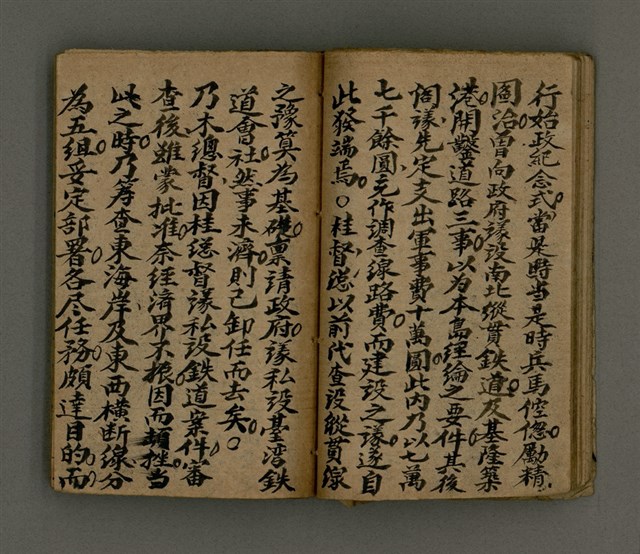 行始政紀念式。當是時當是時兵馬倥偬勵精
圖治。曾向政府議設南北縱貫鉄道。及基隆築
港。開鑿道路三事。以為本島経綸之要件。其後
閣議先定支出軍事費十萬圓。此內乃以七萬
七千餘圓。充作調查線路費。而建設之議。遂自
此發端焉。○桂督總以前代查設縱貫線
之豫算。為基礎。稟請政府。議私設臺湾鉄
道會社。然事未濟。則己卸任而去矣。○
乃木總督因桂總督議私設鉄道案件。審
查後雖蒙批准。奈経済界不振。因而頓挫。当
此之時。乃籌查東海岸及東西横断線。分
為五組。妥定部署。各尽任務。頗達目的。而